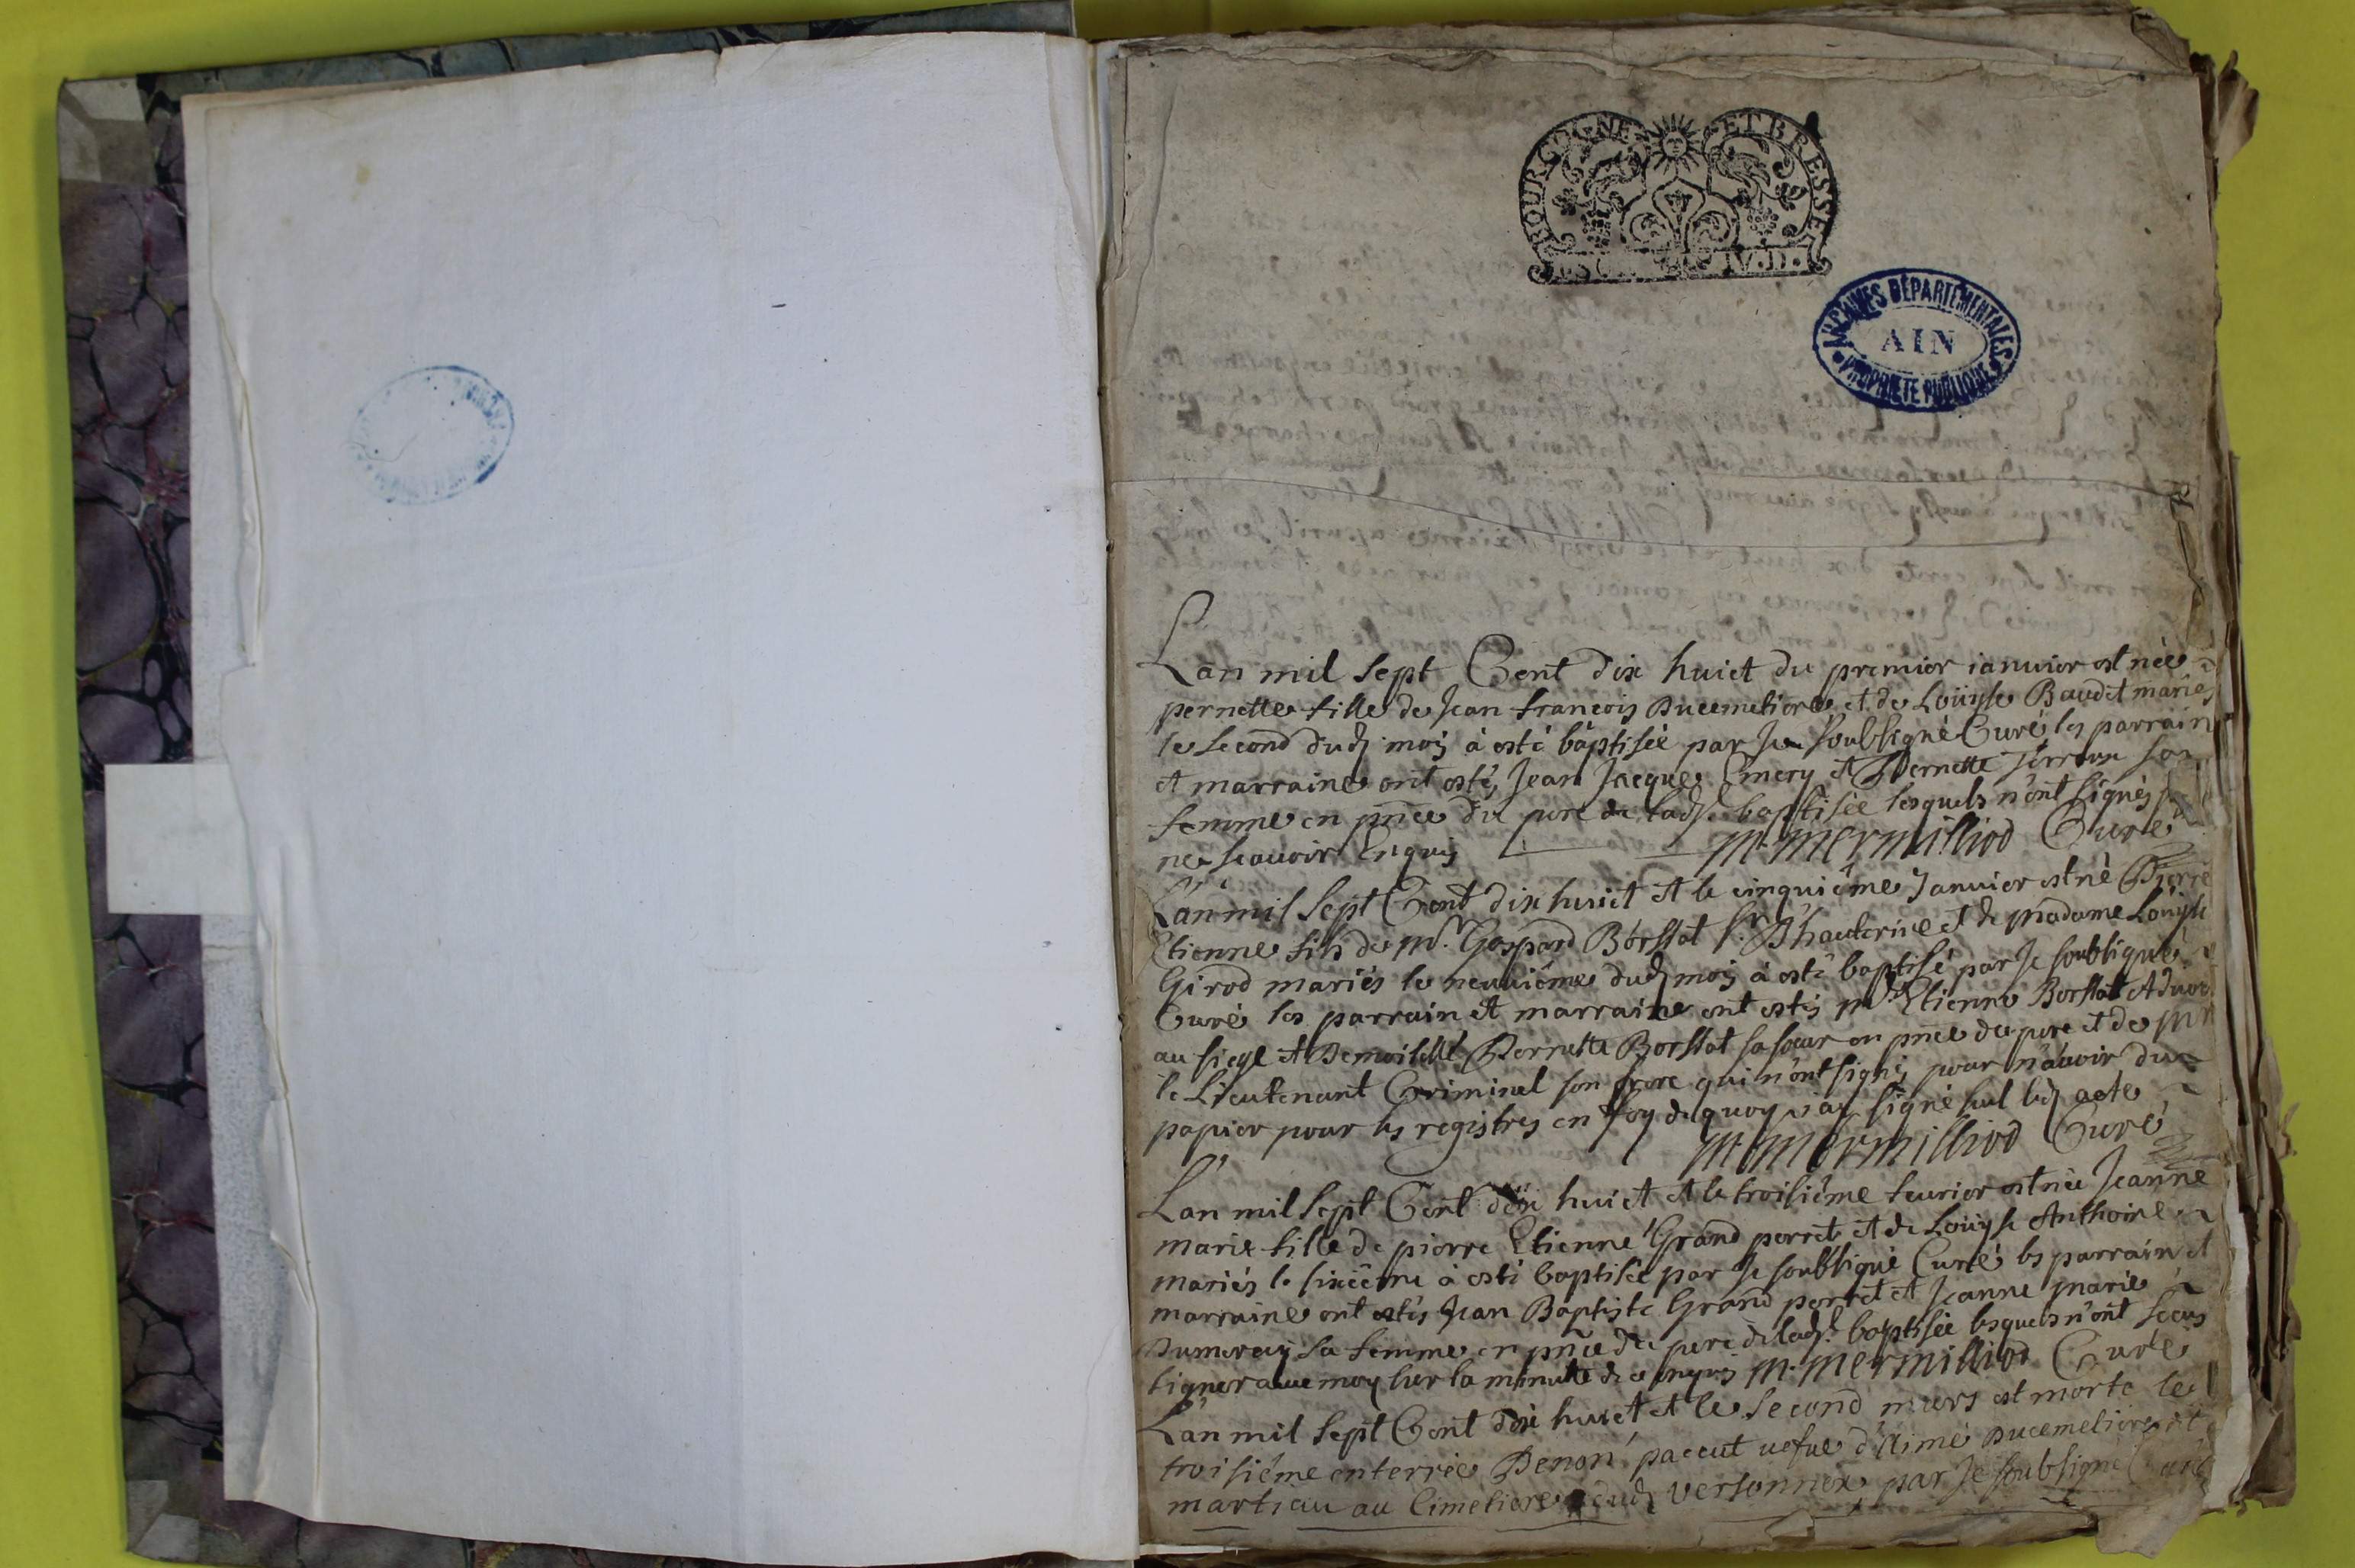 BOURGOGNE ET BRESSE
IV.D.
ARCHIVES DÉPARTEMENTALES
AIN
PROPRIÉTÉ PUBLIQUE
Lan mil sept Cent dix huict du premier ianuier est née
pernette fille de Jean francois Ducemetiere et de Loüyse Baudet mariés
le second dud mois à esté baptisée par Je soubsigné Curé les parrain
et marraine ont estés Jean Jacque Emery et Pernette son
femme en pñce du pere de lad. baptisée lesquels n'ont signés p
ne scauoir Enquis m. mermilliod Curé
L'an mil sept Cent dix huict et le cinquiême Januier est né Pierre
Etienne fils de mr. Gaspard Borssat sr. D'hauterive et de madame Loüyse
Girod mariés le neuuiême dud mois à esté baptisé par Je soubsigné
Curé les parrain et marraine ont estés mr. Etienne Borssat Aduoc
au siege et Demoiselle Pernette Borssat sa soeur en pñce du pere et de mr
le Lieutenant Criminel son frere qui n'ont signés pour n'auoir du
papier pour les registres en foy de quoy i'ay signé seul led acte
m. mermilliod Curé
L'an mil sept Cent dix huict et le troisiême feurier est née Jeanne
marie fille de pierre Etienne Grand perret et de Loüyse Anthoine
mariés le sixiême à esté baptisée par Je soubsigné Curé les parrain et
marraine ont estés Jean Baptiste Grand perret et Jeanne marie
Dumeray sa femme en pñce du pere de lad. baptisée lesquels n'ont sceus
signer auec moy sur la minutte de ce enquis m. mermilliod Curé
L'an mil sept Cent dix huict et le second mars est morte le
troisiême enterrée Denon paccut uefue d'Aimé Ducemetiere dit
martiau au Cimetiere dud Versonnex par Je soubsigné Curé